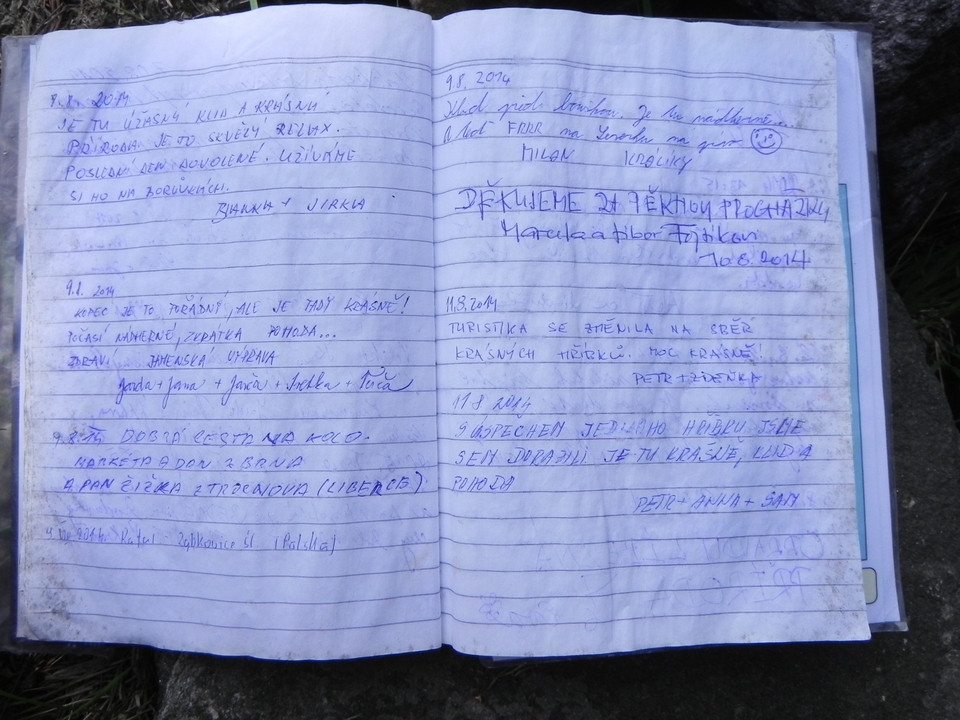 8.8. 2014
JE TU ÚŽASNÝ KLID A KRÁSNÁ
PŘÍRODA. JE TO SKVĚLÝ RELAX.
POSLEDNÍ DEN DOVOLENÉ. UŽÍVÁME
SI HO NA BORŮVKÁCH.
BLANKA + JIRKA
9.8. 2014
KOPEC JE TO POŘÁDNÝ, ALE JE TADY KRÁSNĚ!
POČASÍ NÁDHERNÉ, ZKRÁTKA POHODA...
ZDRAVÍ JAMENSKÁ VÝPRAVA
Jarda + Jana + Jarča + Světka +
9.8. 14 DOBRÁ CESTA NA KOLO.
MARKÉTA A DAN Z BRNA
A PAN ŽIŽKA Z TROCNOVA (LIBEREC)
Rafał - Ząbkowice śl. (Polska)
9.8. 2014
Klid před bouřkou. Je tu nádherně.
FRRR na
MILAN KRÁLÍKY
DĚKUJEME ZA PĚKNOU PROCHÁZKU
Marcela a Libor
10.8.2014
11.8.2014
TURISTIKA SE ZMĚNILA NA SBĚR
KRÁSNÝCH HŘÍBKŮ. MOC KRÁSNĚ!
PETR + ZDEŇKA
11.8 2014
S ÚSPĚCHEM JEDINÉHO HŘÍBKU JSME
SEM DORAZILI JE TU KRÁSNĚ, KLID A
POHODA
PETR + ANNA + SAM